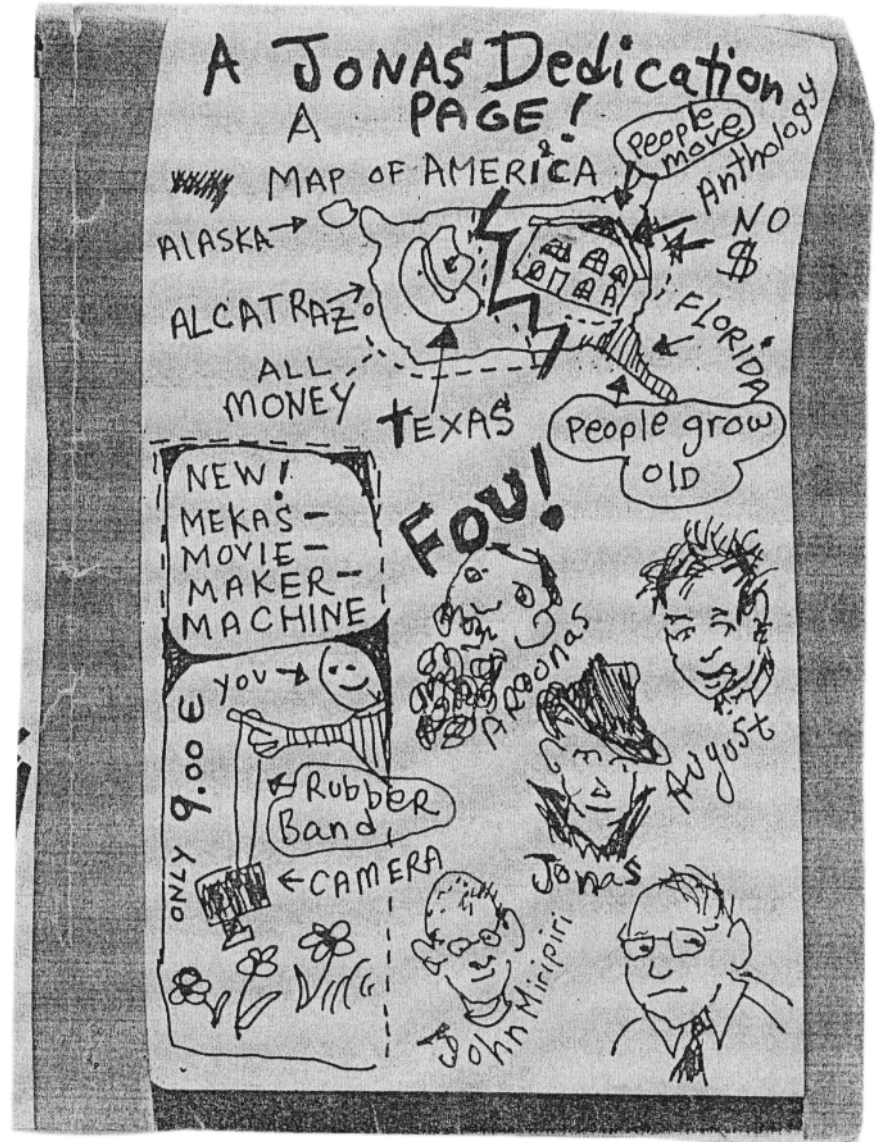 A JONAS Dedication
PAGE!
A
MAP OF AMERICA
People
move
Anthology
ALASKA
NO
$
ALCATRAZ
FLORIDA
ALL
MONEY
TEXAS
People grow
OlD
NEW!
MEKAS-
MOVIE-
MAKER-
MACHINE
FOU!
YOU
ONLY 9.00 €
Rubber
Band
CAMERA
August
Jonas
John Miripiri